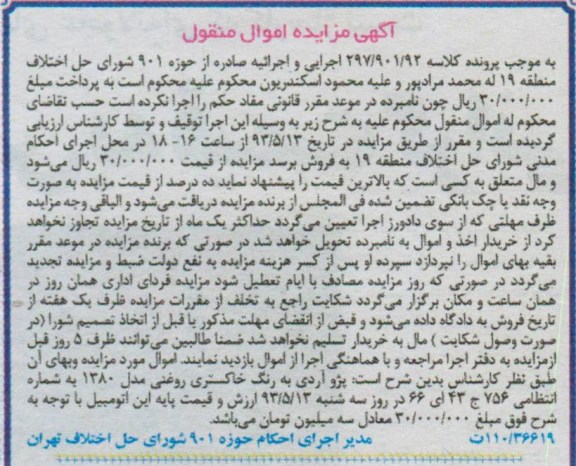 آگهی مزایده اموال منقول
به موجب پرونده کلاسه ۲۹۷/۹۰۱/۹۲ اجرایی و اجرائیه صادره از حوزه ۹۰۱ شورای حل اختلاف
منطقه ۱۹ له محمد مرادپور و علیه محمود اسکندریون محکوم علیه محکوم است به پرداخت مبلغ
۳۰/۰۰۰/۰۰۰ ریال چون نامبرده در موعد مقرر قانونی مفاد حکم را اجرا نکرده است حسب تقاضای
محکوم له اموال منقول محکوم علیه به شرح زیر به وسیله این اجرا توقیف و توسط کارشناس ارزیابی
گردیده است و مقرر از طریق مزایده در تاریخ ۹۳/۵/۱۳ از ساعت ۱۶- ۱۸ در محل اجرای احکام
مدنی شورای حل اختلاف منطقه ۱۹ به فروش برسد مزایده از قیمت ۳۰/۰۰۰/۰۰۰ ریال می‌شود
و مال متعلق به کسی است که بالاترین قیمت را پیشنهاد نماید ده درصد از قیمت مزایده به صورت
وجه نقد یا چک بانکی تضمین شده فی المجلس از برنده مزایده دریافت می‌شود و الباقی وجه مزایده
ظرف مهلتی که از سوی دادورز اجرا تعیین می‌گردد حداکثر یک ماه از تاریخ مزایده تجاوز نخواهد
کرد از خریدار اخذ و اموال به نامبرده تحویل خواهد شد در صورتی که برنده مزایده در موعد مقرر
بقیه بهای اموال را نپردازد سپرده او پس از کسر هزینه مزایده به نفع دولت ضبط و مزایده تجدید
می‌گردد در صورتی که روز مزایده مصادف با ایام تعطیل شود مزایده فردای اداری همان روز در
همان ساعت و مکان برگزار می‌گردد شکایت راجع به تخلف از مقررات مزایده ظرف یک هفته از
تاریخ فروش به دادگاه داده می‌شود و قبض از انقضای مهلت مذکور یا قبل از اتخاذ تصمیم شورا (در
صورت وصول شکایت ) مال به خریدار تسلیم نخواهد شد ضمنا طالبین می‌توانند ظرف ۵ روز قبل
ازمزایده به دفتر اجرا مراجعه و با هماهنگی اجرا از اموال بازدید نمایند. اموال مورد مزایده وبهای آن
طبق نظر کارشناس بدین شرح است: پژو آردی به رنگ خاکستری روغنی مدل ۱۳۸۰ به شماره
انتظامی ۷۵۶ ج ۴۳ ای ۶۶ در روز سه شنبه ۹۳/۵/۱۳ ارزش و قیمت پایه این اتومبیل با توجه به
شرح فوق مبلغ ۳۰/۰۰۰/۰۰۰ معادل سه میلیون تومان می‌باشد.
۱۱۰/۳۶۶۱۹ت مدیر اجرای احکام حوزه ۹۰۱ شورای حل اختلاف تهران